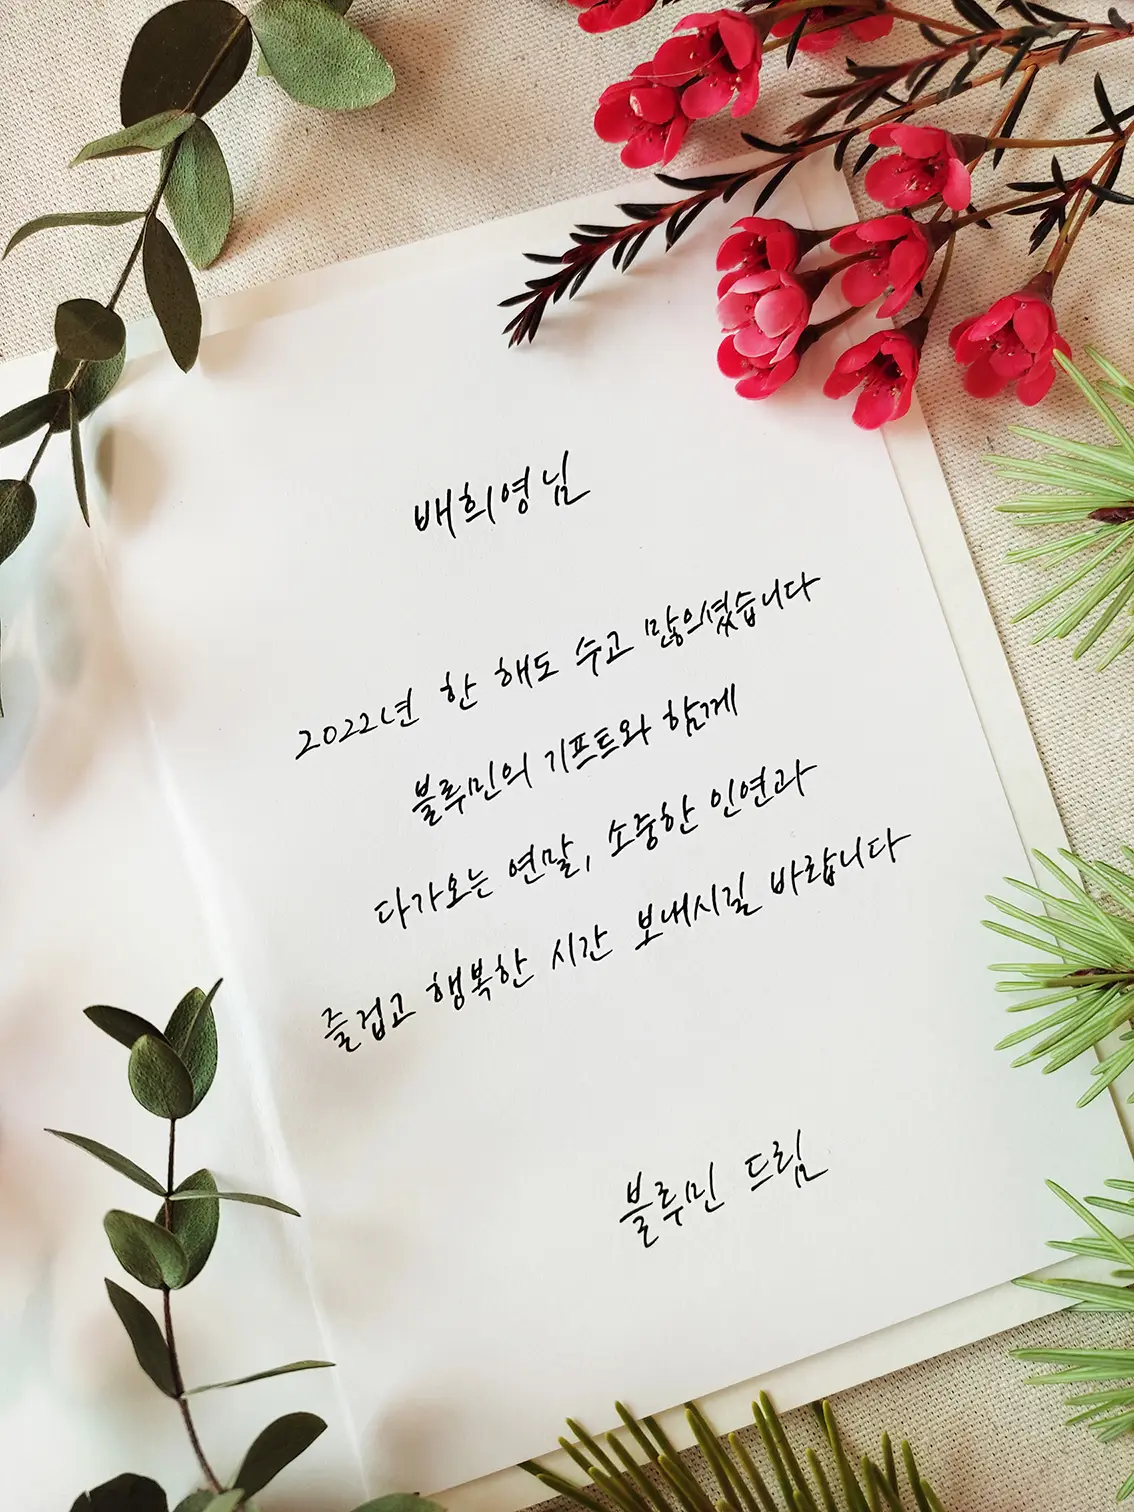 배희영님
2022년 한 해도 수고 많으셨습니다
블루민의 기프트와 함께
다가오는 연말, 소중한 인연과
즐겁고 행복한 시간 보내시길 바랍니다
블루민 드림